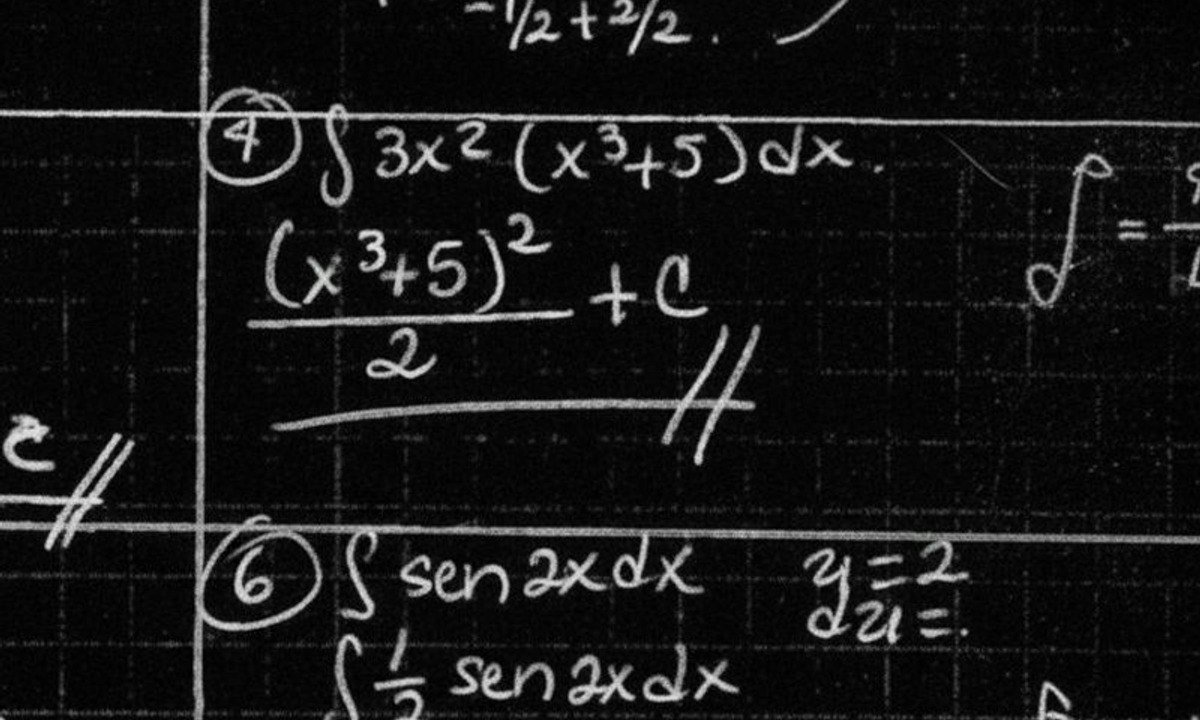 -1/2 + 2/2 .
④ ∫ 3x² (x³+5) dx .
(x³+5)² / 2 + C //
∫ =
c //
⑥ ∫ sen 2x dx
u = 2
du = .
∫ 1/2 sen 2x dx